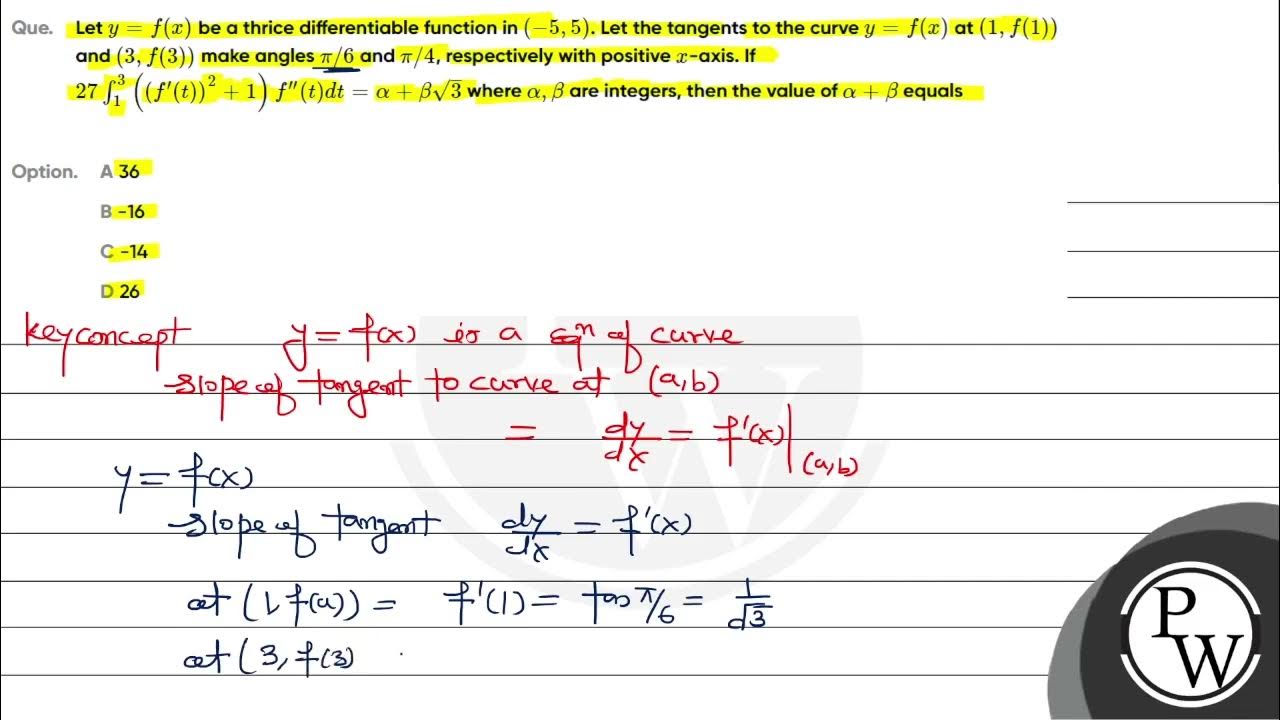 Que. Let y = f(x) be a thrice differentiable function in (−5, 5). Let the tangents to the curve y = f(x) at (1, f(1))
and (3, f(3)) make angles π/6 and π/4, respectively with positive x-axis. If
27 ∫₁³ ((f′(t))² + 1) f″(t)dt = α + β√3 where α, β are integers, then the value of α + β equals
Option. A 36
B -16
C -14
D 26
key concept y = f(x) is a eqⁿ of curve
slope of tangent to curve at (a,b)
= dy/dx = f′(x)|(a,b)
y = f(x)
slope of tangent dy/dx = f′(x)
at (1, f(a)) = f′(1) = tan π/6 = 1/√3
at (3, f(3)
PW